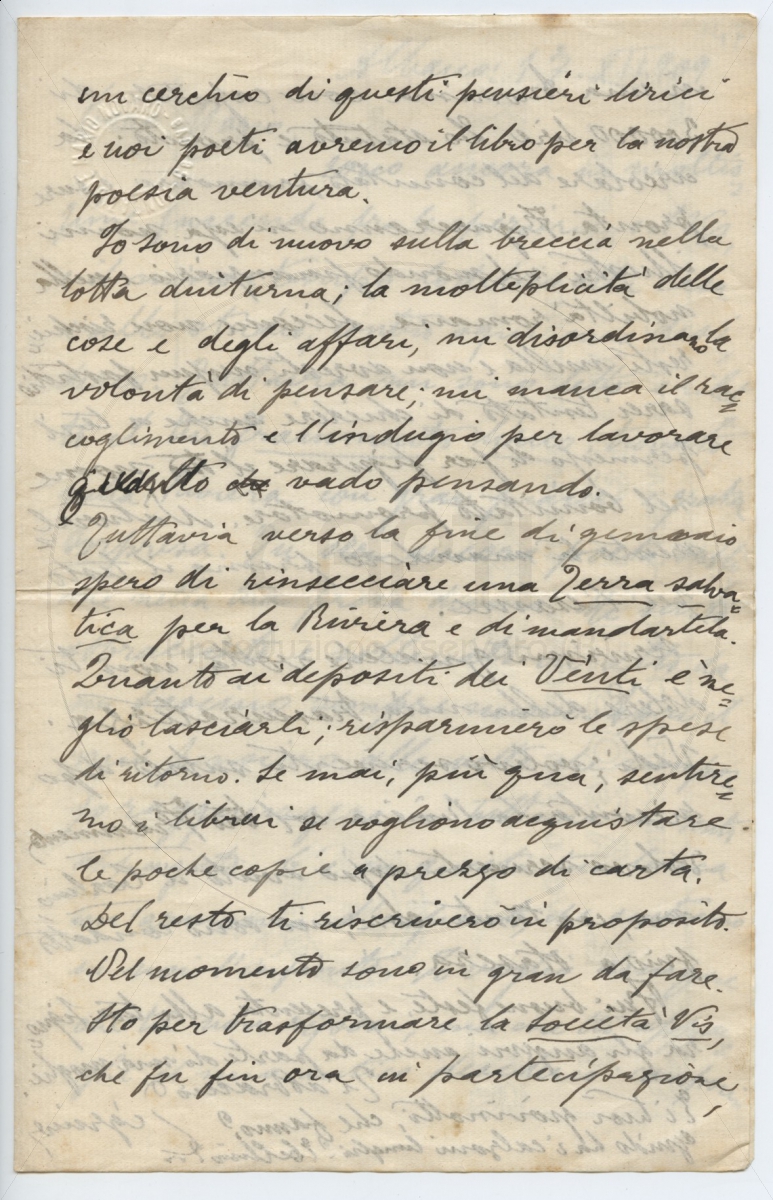 un cerchio di questi pensieri lirici
e noi poeti avremo il libro per la nostra
poesia ventura.
Io sono di nuovo sulla breccia nella
lotta diuturna; la molteplicità delle
cose e degli affari, mi disordinano la
volontà di pensare; mi manca il rac=
coglimento e l'indugio per lavorare
quanto vado pensando.
Tuttavia verso la fine di gennaio
spero di rinsecciare una Terra salva=
tica per la Riviera e di mandartela.
Quanto ai depositi dei Venti è me=
glio lasciarli; risparmierò le spese
di ritorno. Se mai, più qua, sentire=
mo i librai se vogliono acquistare
le poche copie a prezzo di carta.
Del resto ti riscriverò in proposito.
Nel momento sono in gran da fare.
Sto per trasformare la Società Vis,
che fu fin ora in partecipazione,